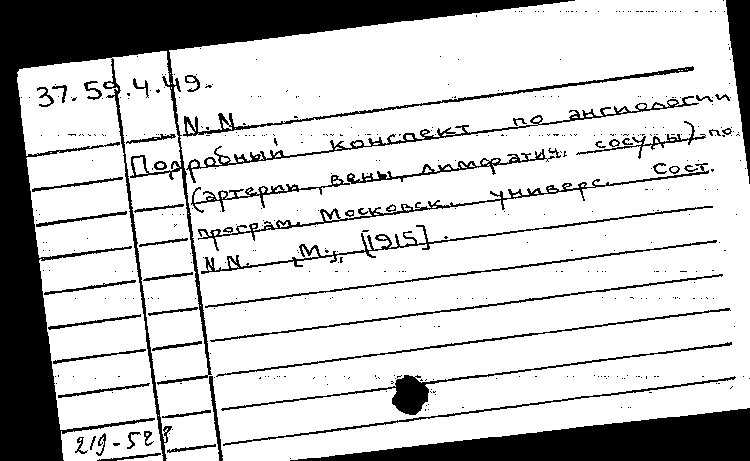 37.59.4.49.
N.N.
Подробный конспект по ангиологии
(артерии, вены, лимфатич. сосуды) по
програм. Московск. универс. Сост.
N.N. [М.], [1915].
219-58?